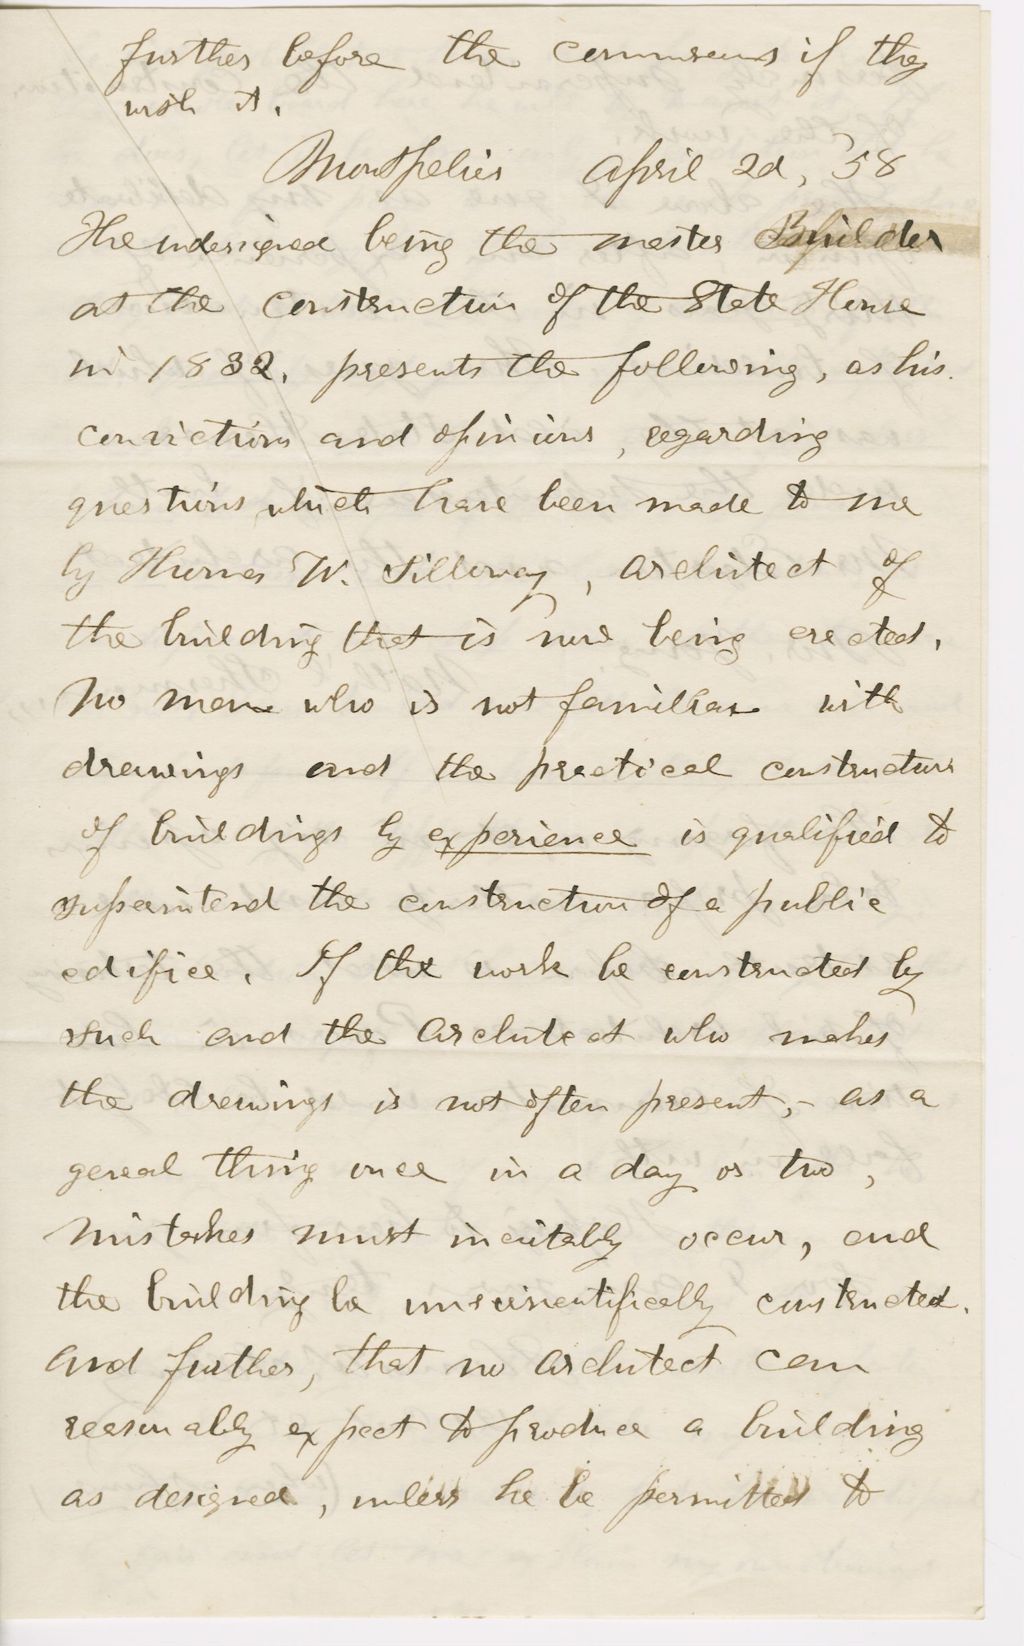 further before the commrs if they
wish it.
Montpelier April 2d, '58
The undersigned being the master Builder
at the construction of the State House
in 1832, presents the following, as his
convictions and opinions, regarding
questions which have been made to me
by Thomas W. Silloway, architect of
the building that is now being erected.
No man who is not familiar with
drawings and the practical construction
of buildings by experience is qualified to
superintend the construction of a public
edifice. If the work be constructed by
such and the architect who makes
the drawings is not often present,- as a
geneal thing once in a day or two,
mistakes must inevitably occur, and
the building be unscientifically constructed.
And further, that no architect can
reasonably expect to produce a building
as designed, unless he be permitted to